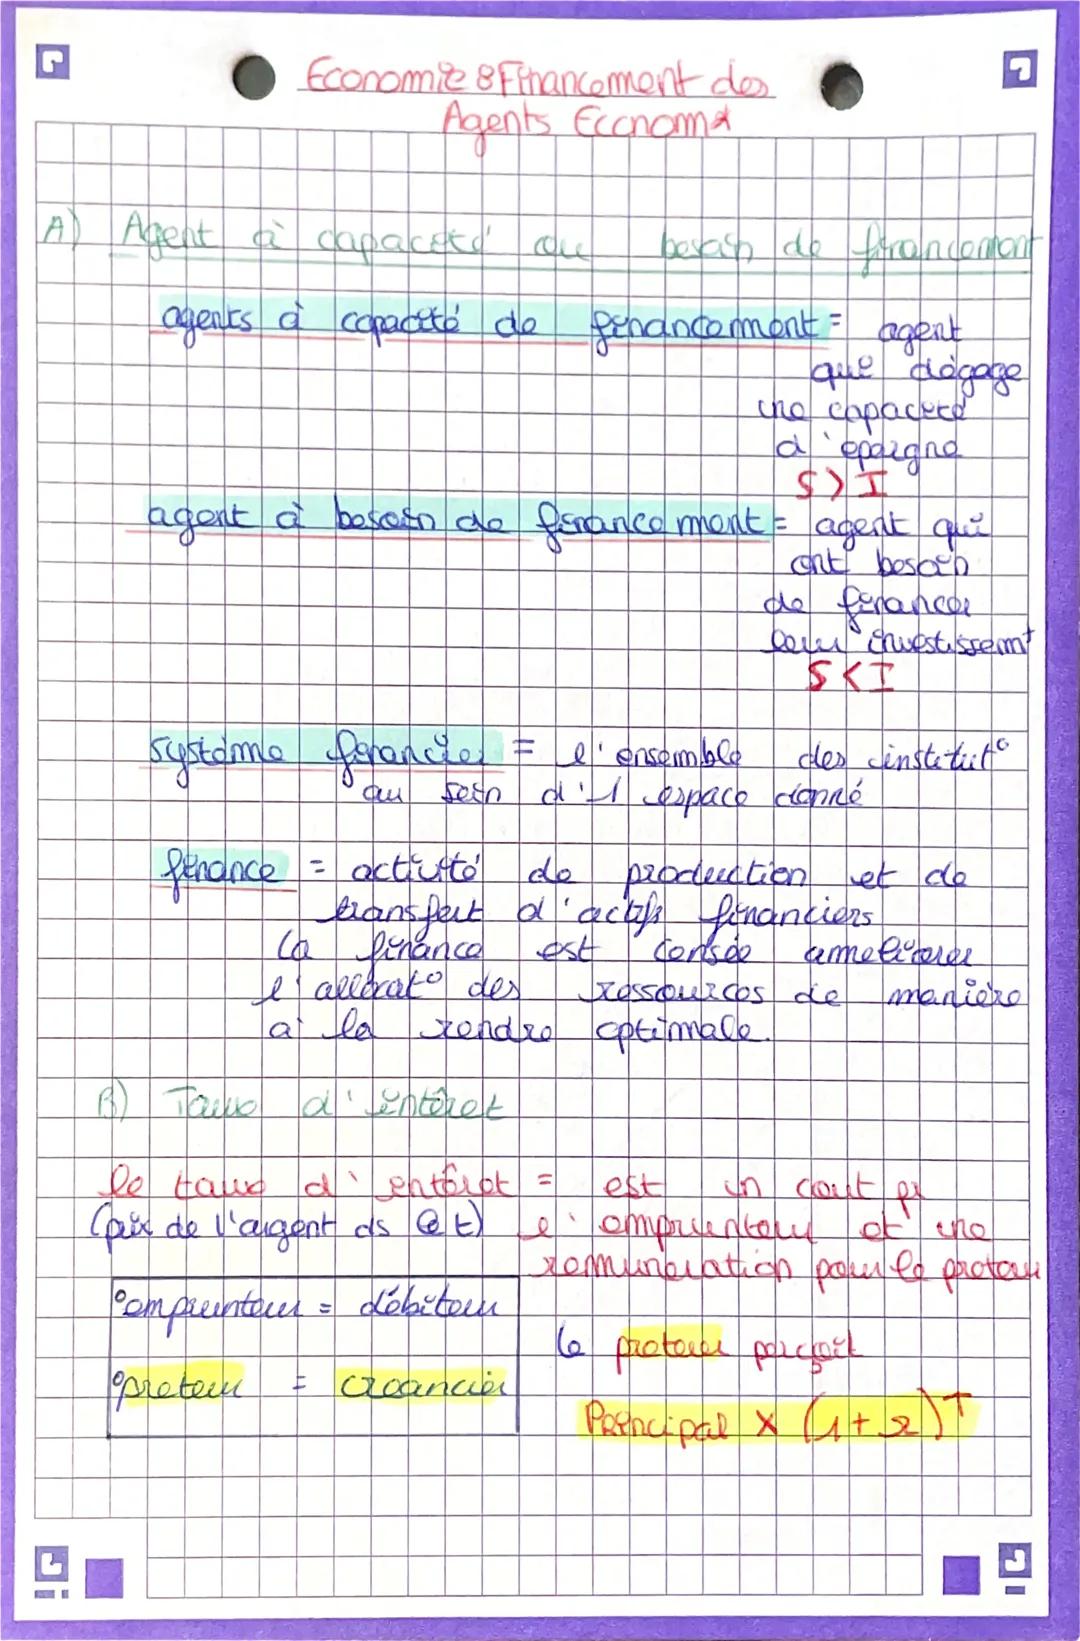 Economie & Financement des
Agents Econom
A) Agent à capacité ou besoin de financement
agents à capacité de financement = agent
que dégage
une capacité
d'épargne
S > I
agent à besoin de financement = agent qui
ont besoin
de financer
leur investissemt
S < I
système financier = l'ensemble des institut°
au sein d'1 espace donné
finance = activité de production et de
transfert d'actifs financiers
la finance est censée ameliorer
l'allocat° des ressources de manière
à la rendre optimale.
B) Taux d'intêret
le taux d'intêret = est un cout pr
(prix de l'argent ds le t) l'emprunteur et une
remuneration pour le preteur
°emprunteur = débiteur
le preteur perçoit
°preteur = creancier
Principal x (1 + r)^T